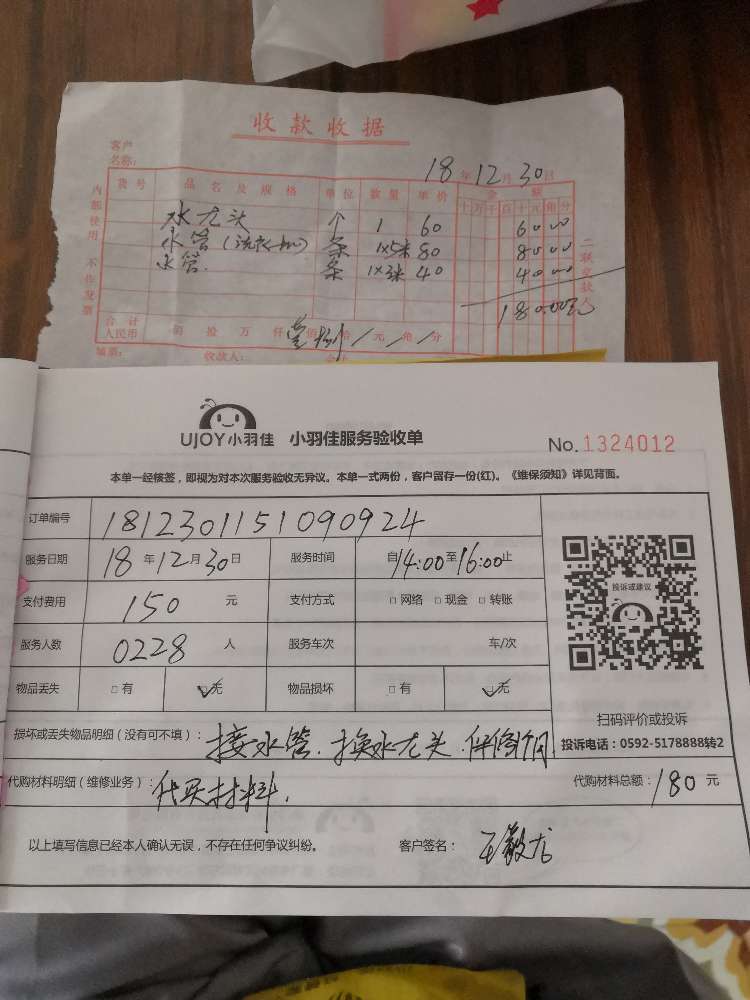 收款收据
客户
名称:
18年12月30日
货号 品名及规格 单位 数量 单价 金额
十万千百十元角分
水龙头 个 1 60 6000
水管(洗衣机) 条 1×5米 80 8000
水管. 条 1×3米 40 4000
180.00元
合计
人民币 佰拾万仟壹佰捌拾/元/角/分
内部使用 不作发票
二联交款人
收款人:
UJOY小羽佳 小羽佳服务验收单 No.1324012
本单一经核签，即视为对本次服务验收无异议。本单一式两份，客户留存一份(红)。《维保须知》详见背面。
订单编号 1812301151090924
服务日期 18年12月30日 服务时间 自14:00至16:00止
支付费用 150元 支付方式 □网络 □现金 □转账
服务人数 0228人 服务车次 车/次
物品丢失 □有 ☑无 物品损坏 □有 ☑无
投诉或建议
扫码评价或投诉
投诉电话：0592-5178888转2
损坏或丢失物品明细（没有可不填）：接水管.换水龙头.保修
代购材料明细（维修业务）：代买材料. 代购材料总额：180元
以上填写信息已经本人确认无误，不存在任何争议纠纷。 客户签名：